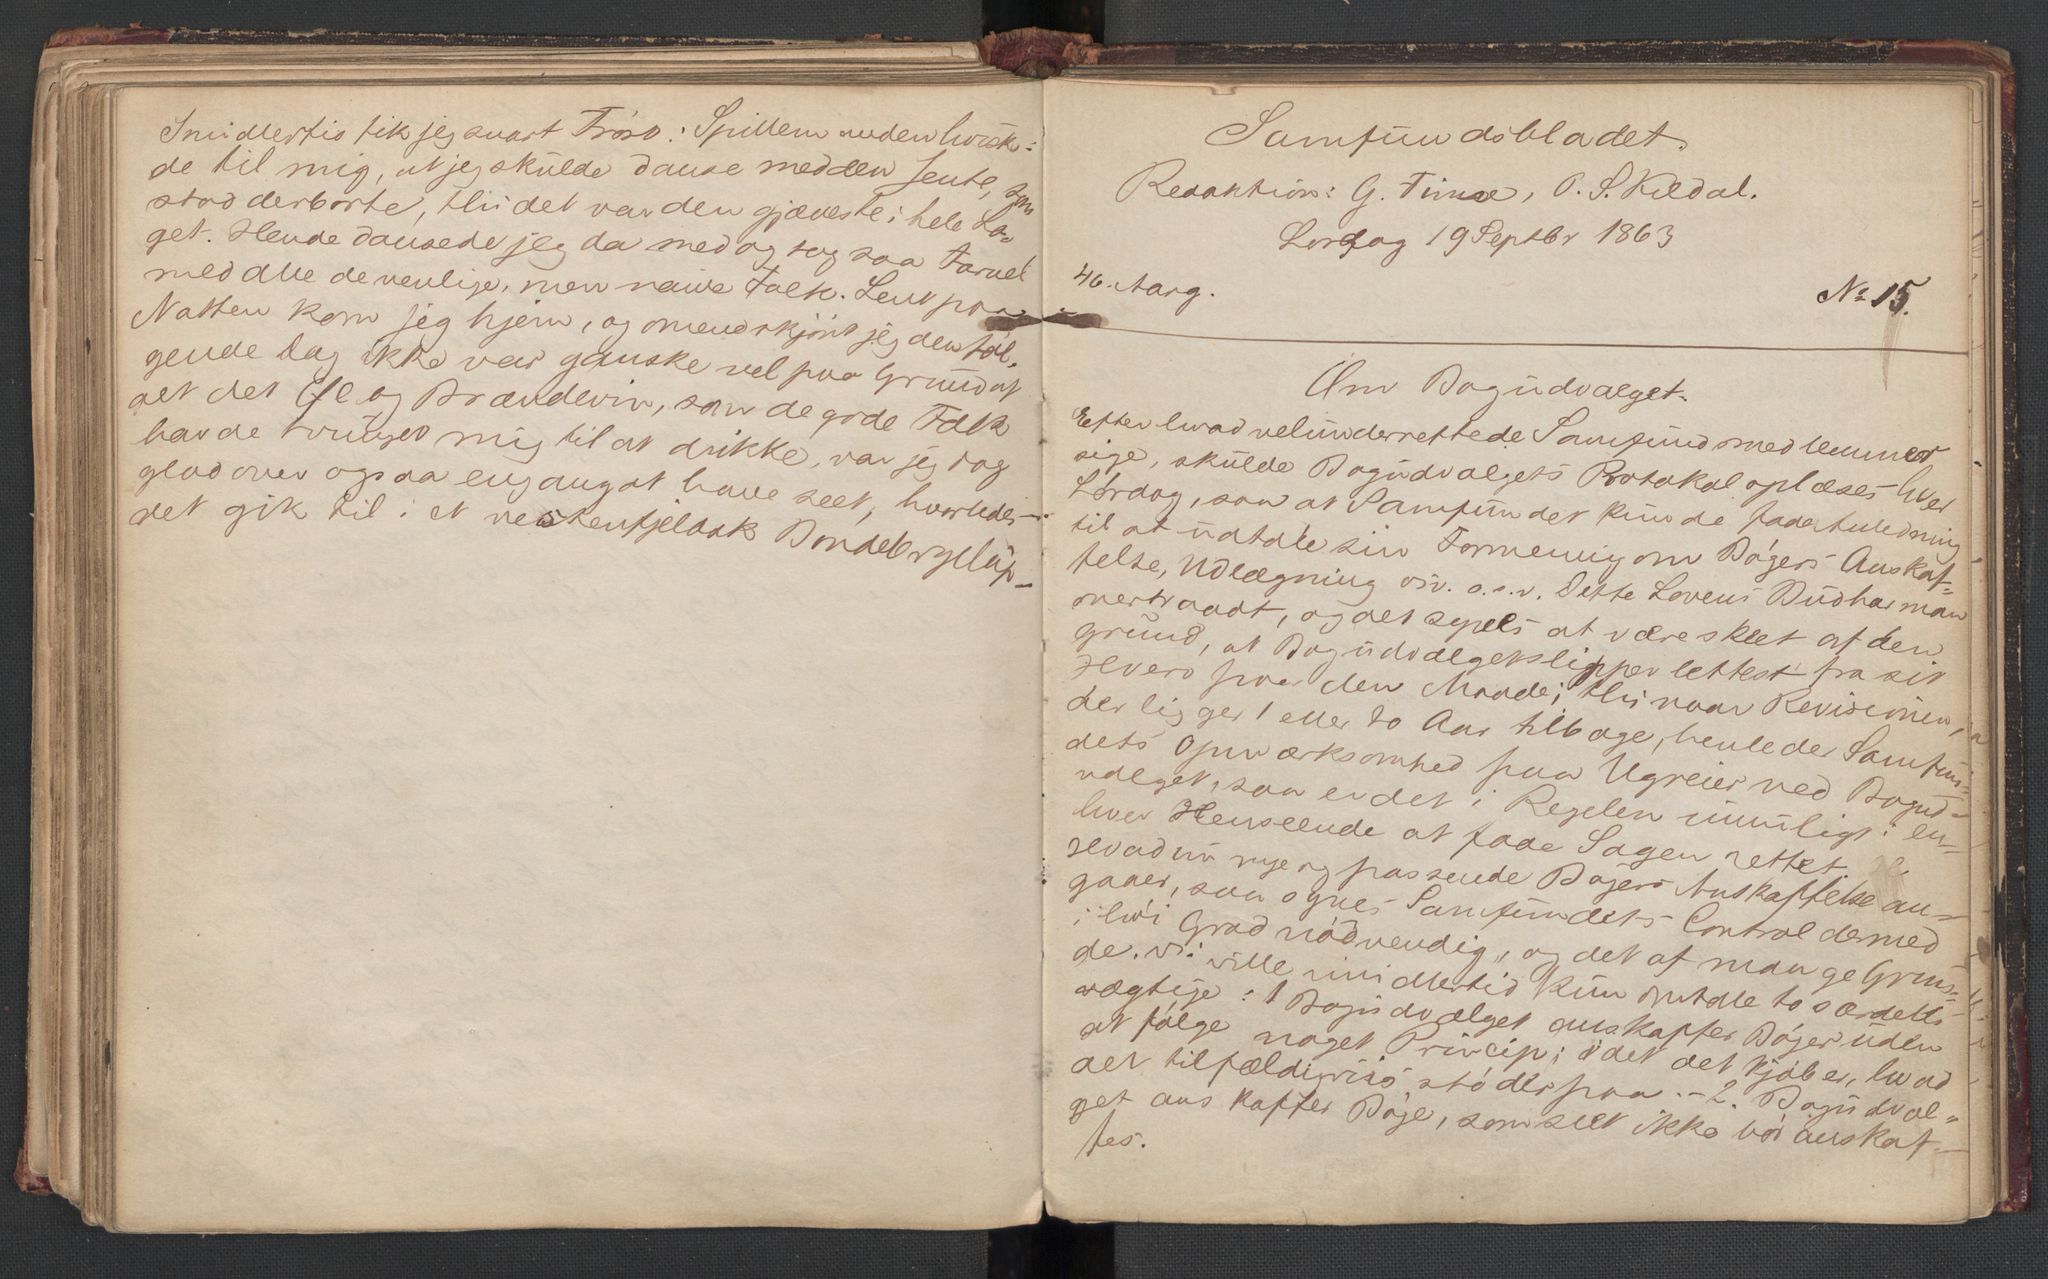 Imidlertid fik jeg snart Trøst: Spillemanden hviske-
de til mig, at jeg skulde danse med den Jente, som
stod derborte, thi det var den gjæveste i hele La-
get. Hende dansede jeg da med og tog saa Farvel
med alle de venlige, men naive Folk. Sent paa
Natten kom jeg hjem, og omendskjönt jeg den föl-
gende Dag ikke var ganske vel paa Grund af
alt det Öl og Brændeviin, som de gode Folk
havde tvunget mig til at drikke, var jeg dog
glad over ogsaa engang at have seet, hvorledes
det gik til i et vestenfjeldsk Bondebryllup.-
Samfundsbladet.
Redaktion: G. Time, P. S. Kildal.
Lørdag 19 Septbr 1863
46. Aarg.
No 15.
Om Bogudvalget.
Efter hvad velunderrettede Samfundsmedlemmer
sige, skulde Bogudvalgets Protokol oplæses hver
Lørdag, saa at Samfundet kunde faae Anledning
til at udtale sin Formening om Bøgers Anskaf-
felse, Udlægning osv. o.s.v. Dette Lovens Bud har man
overtraadt, og det synes at være skeet af den
Grund, at Bogudvalget slipper lettest fra sit
Hverv paa den Maade; thi naar Revisionen,
der ligger 1 eller to Aar tilbage, henleder Samfun-
dets Opmærksomhed paa Ugreier ved Bogud-
valget, saa er det i Regelen umuligt i en-
hver Henseende at faae Sagen rettet.
Hvad nu nye og passende Bøgers Anskaffelse an-
gaaer, saa synes Samfundets Control dermed
i høi Grad nødvendig, og det af mange Grun-
de. Vi ville imidlertid kun omtale to særdeles
vægtige: 1 Bogudvalget anskaffer Bøger uden
at følge noget Princip; idet det kjøber, hvad
det tilfældigviis støder paa. - 2. Bogudval-
get anskaffer Bøge, som slet ikke bør anskaf-
fes.